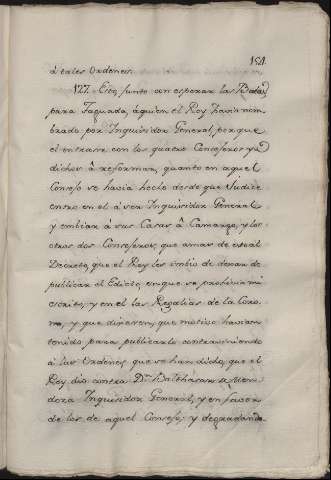 154
á tales Ordenes.
127. Esto, junto con esperar las Bulas
para Taquada, á quien el Rey havia nom-
brado por Inquisidor General, porque
el entrasse con los quatro Consejeros ya
dichos á reformar, quanto en aquel
Consejo se havia hecho desde que Judice
entro en el á ser Inquisidor General
y embiar á sus Casas á Camargo, y los
otros dos Consejeros, que amas de estar
Decreto, que el Rey les imbio de dexar de
publicar el Edicto, en que se prohivia mi
escrito, y en el las Regalias de la Coro-
na, y que dixesen, que motivo havian
tenido, para publicarlo contraviniendo
á las Ordenes, que se han dicho, que el
Rey dio contra Dn. Balthasar de Men-
doza Inquisidor General, y en favor
de los de aquel Consejo, y degradando